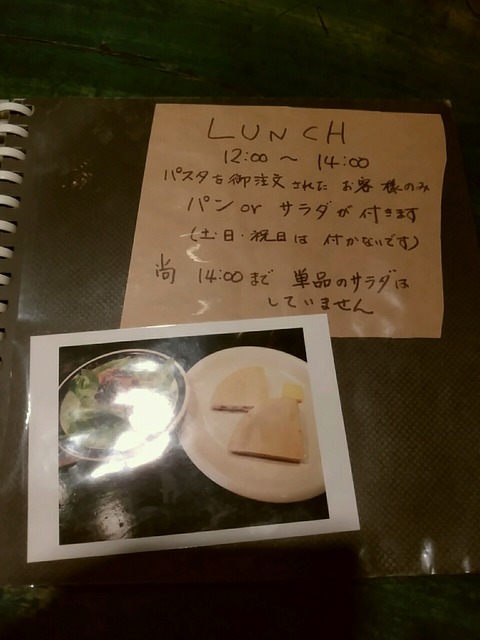 LUNCH
12:00 〜 14:00
パスタを御注文された お客様のみ
パン or サラダが 付きます
(土・日・祝日は 付かないです)
尚 14:00まで 単品のサラダは
していません